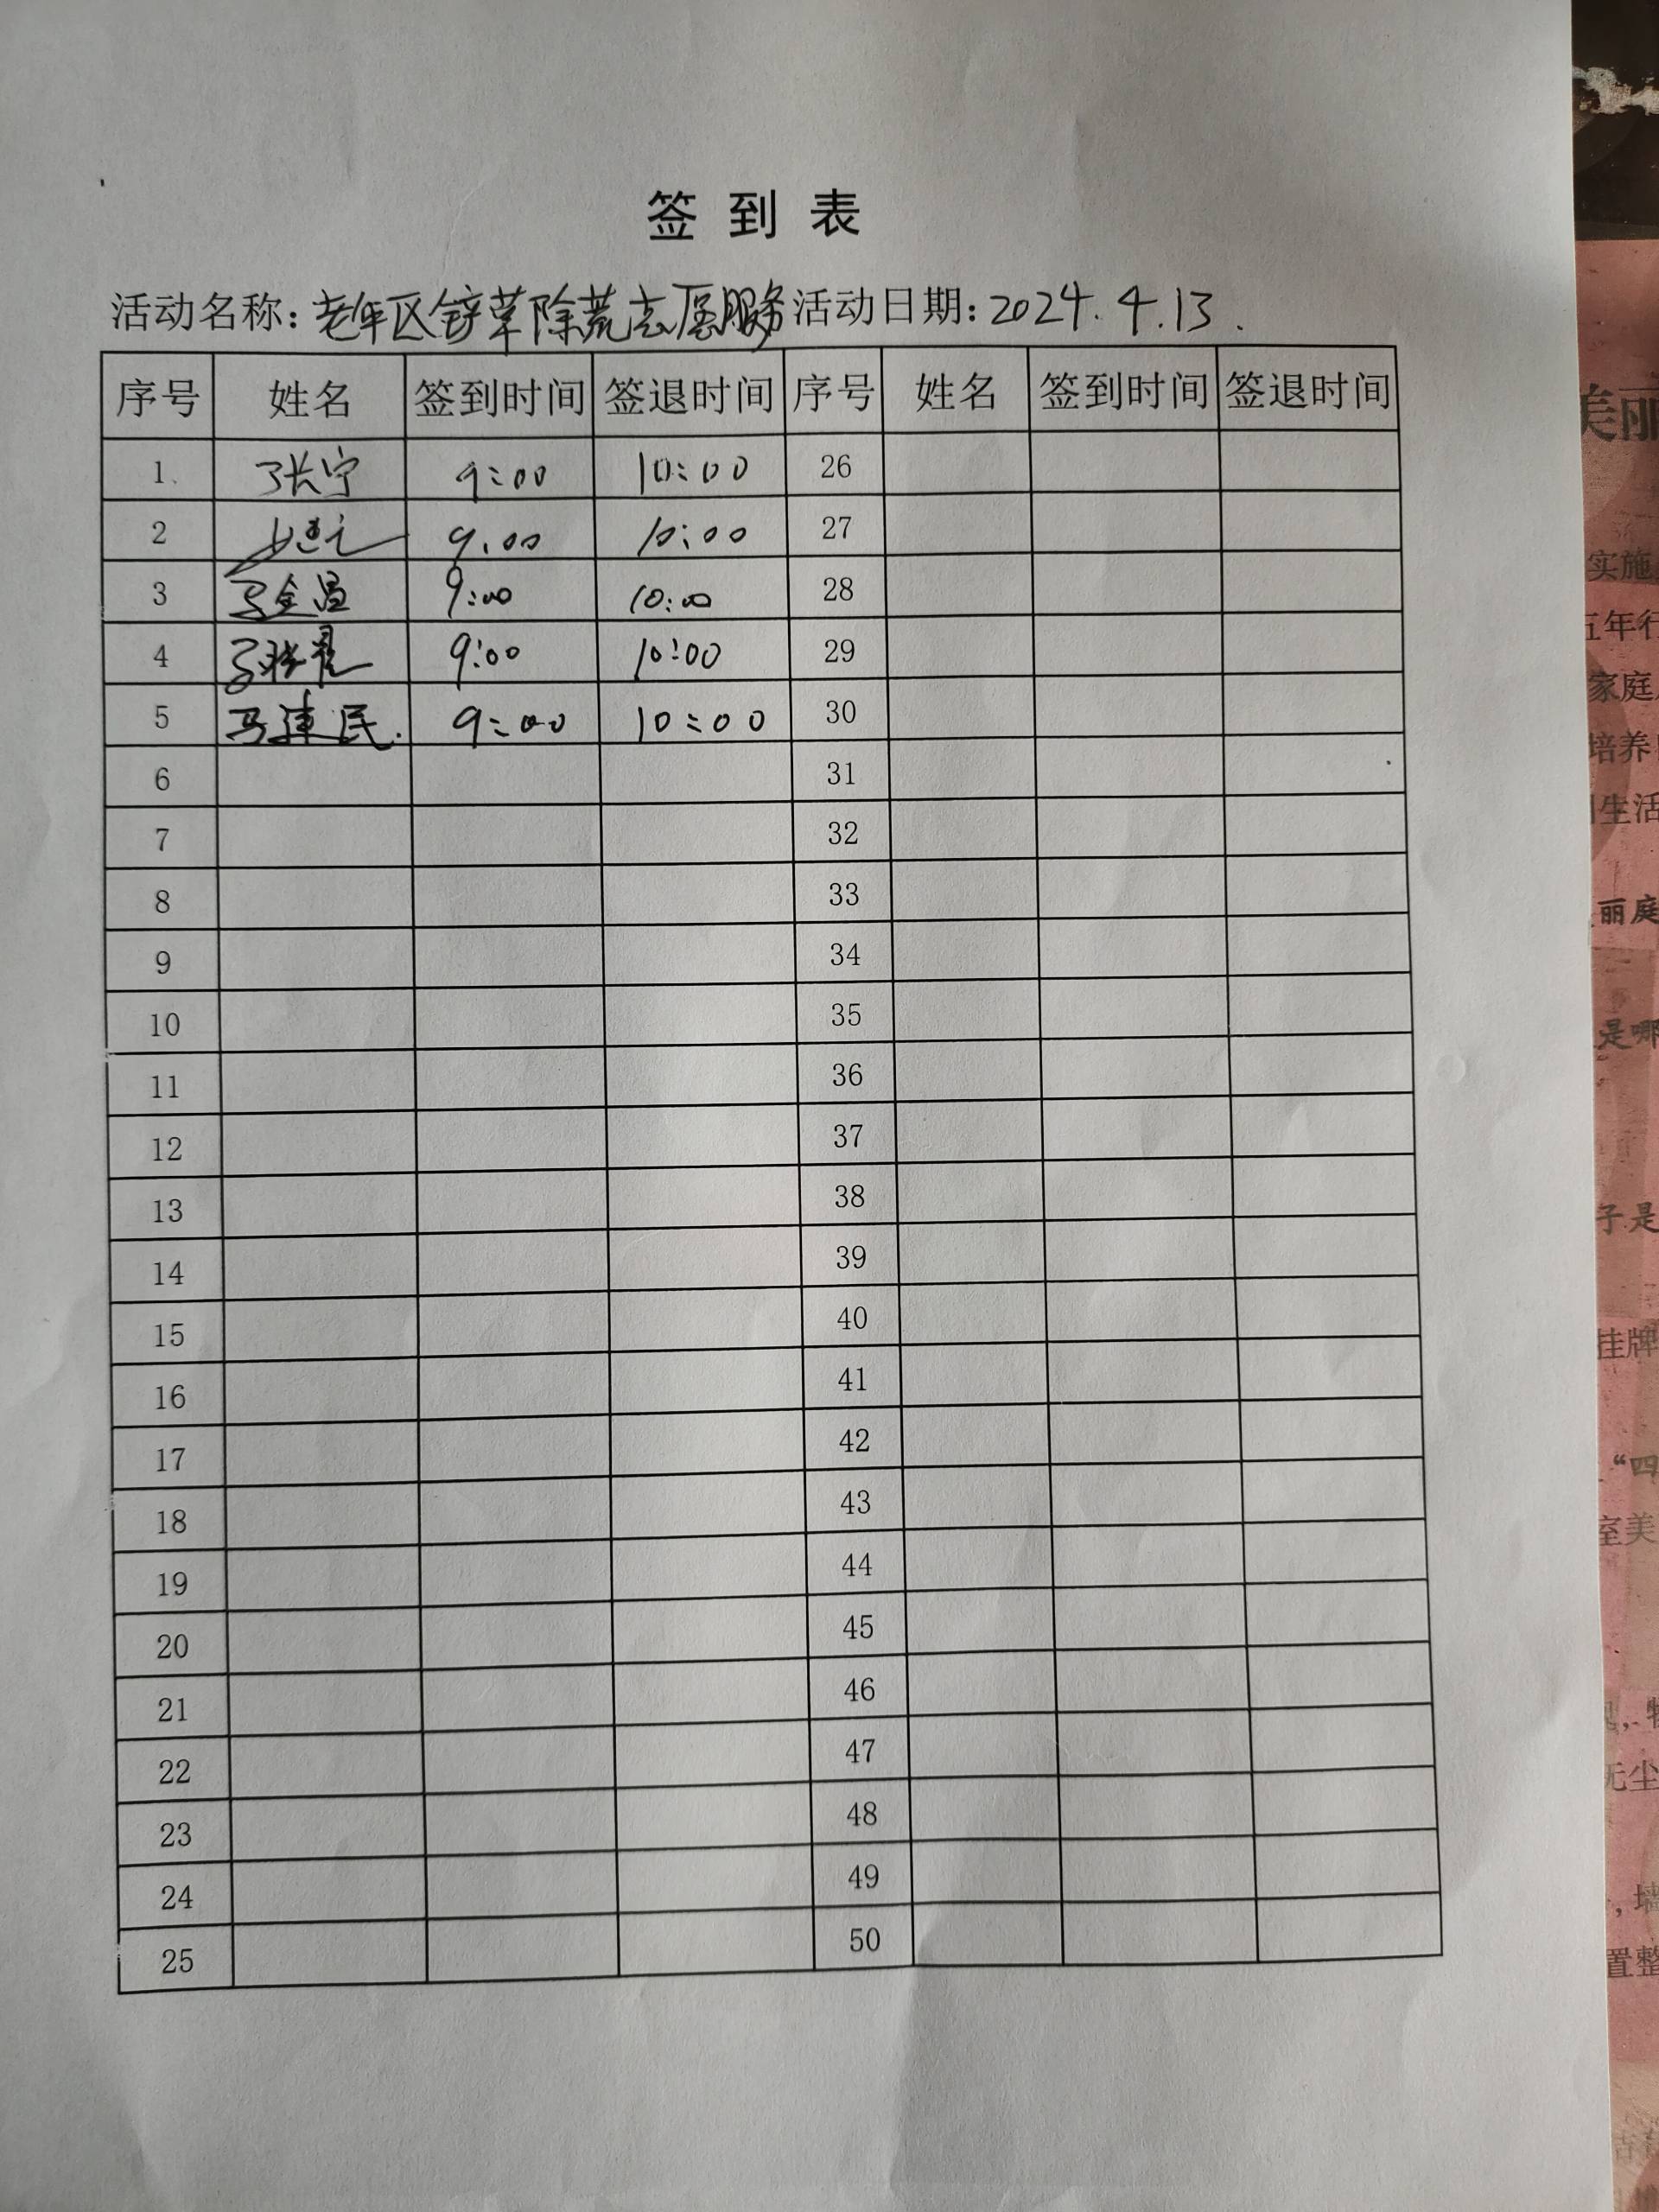 签到表
活动名称：老年区锄草除荒志愿服务 活动日期：2024.4.13.
序号 姓名 签到时间 签退时间 序号 姓名 签到时间 签退时间
1 张宁 9:00 10:00 26
2 9:00 10:00 27
3 马金昌 9:00 10:00 28
4 9:00 10:00 29
5 马建民. 9:00 10:00 30
6 31
7 32
8 33
9 34
10 35
11 36
12 37
13 38
14 39
15 40
16 41
17 42
18 43
19 44
20 45
21 46
22 47
23 48
24 49
25 50
美丽
实施
五年行
家庭
培养
生活
丽庭
是哪
子是
挂牌
“四
室美
无尘
，墙
置整